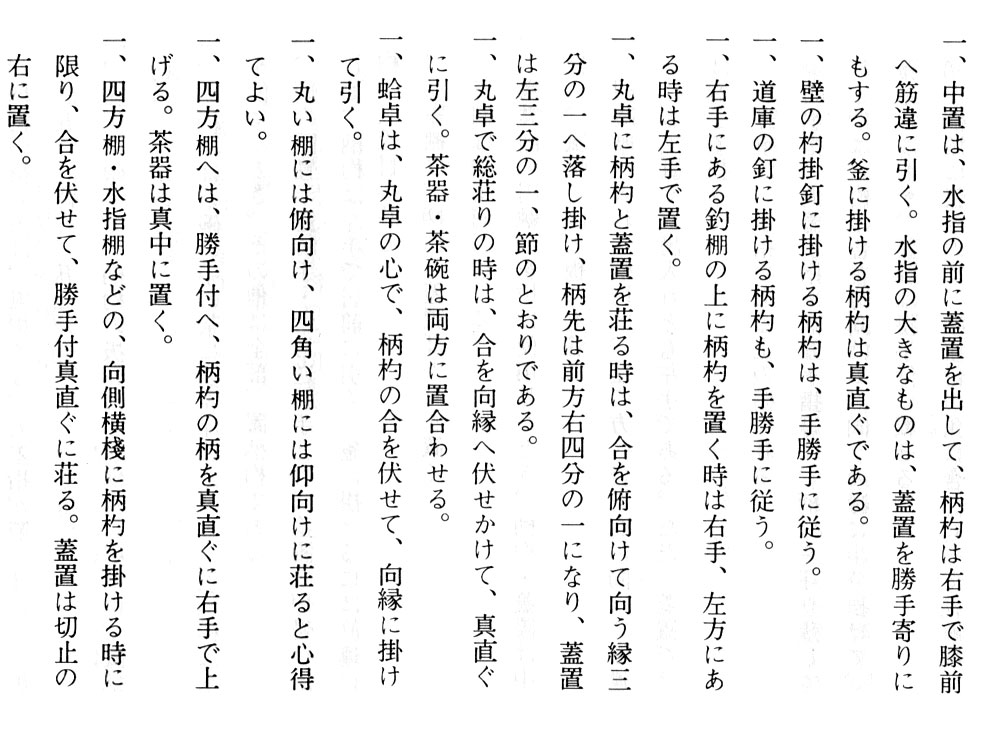 一、中置は、水指の前に蓋置を出して、柄杓は右手で膝前
へ筋違に引く。水指の大きなものは、蓋置を勝手寄りに
もする。釜に掛ける柄杓は真直ぐである。
一、壁の杓掛釘に掛ける柄杓は、手勝手に従う。
一、道庫の釘に掛ける柄杓も、手勝手に従う。
一、右手にある釣棚の上に柄杓を置く時は右手、左方にあ
る時は左手で置く。
一、丸卓に柄杓と蓋置を荘る時は、合を俯向けて向う縁三
分の一へ落し掛け、柄先は前方右四分の一になり、蓋置
は左三分の一、節のとおりである。
一、丸卓で総荘りの時は、合を向縁へ伏せかけて、真直ぐ
に引く。茶器・茶碗は両方に置合わせる。
一、蛤卓は、丸卓の心で、柄杓の合を伏せて、向縁に掛け
て引く。
一、丸い棚には俯向け、四角い棚には仰向けに荘ると心得
てよい。
一、四方棚へは、勝手付へ、柄杓の柄を真直ぐに右手で上
げる。茶器は真中に置く。
一、四方棚・水指棚などの、向側横棧に柄杓を掛ける時に
限り、合を伏せて、勝手付真直ぐに荘る。蓋置は切止の
右に置く。